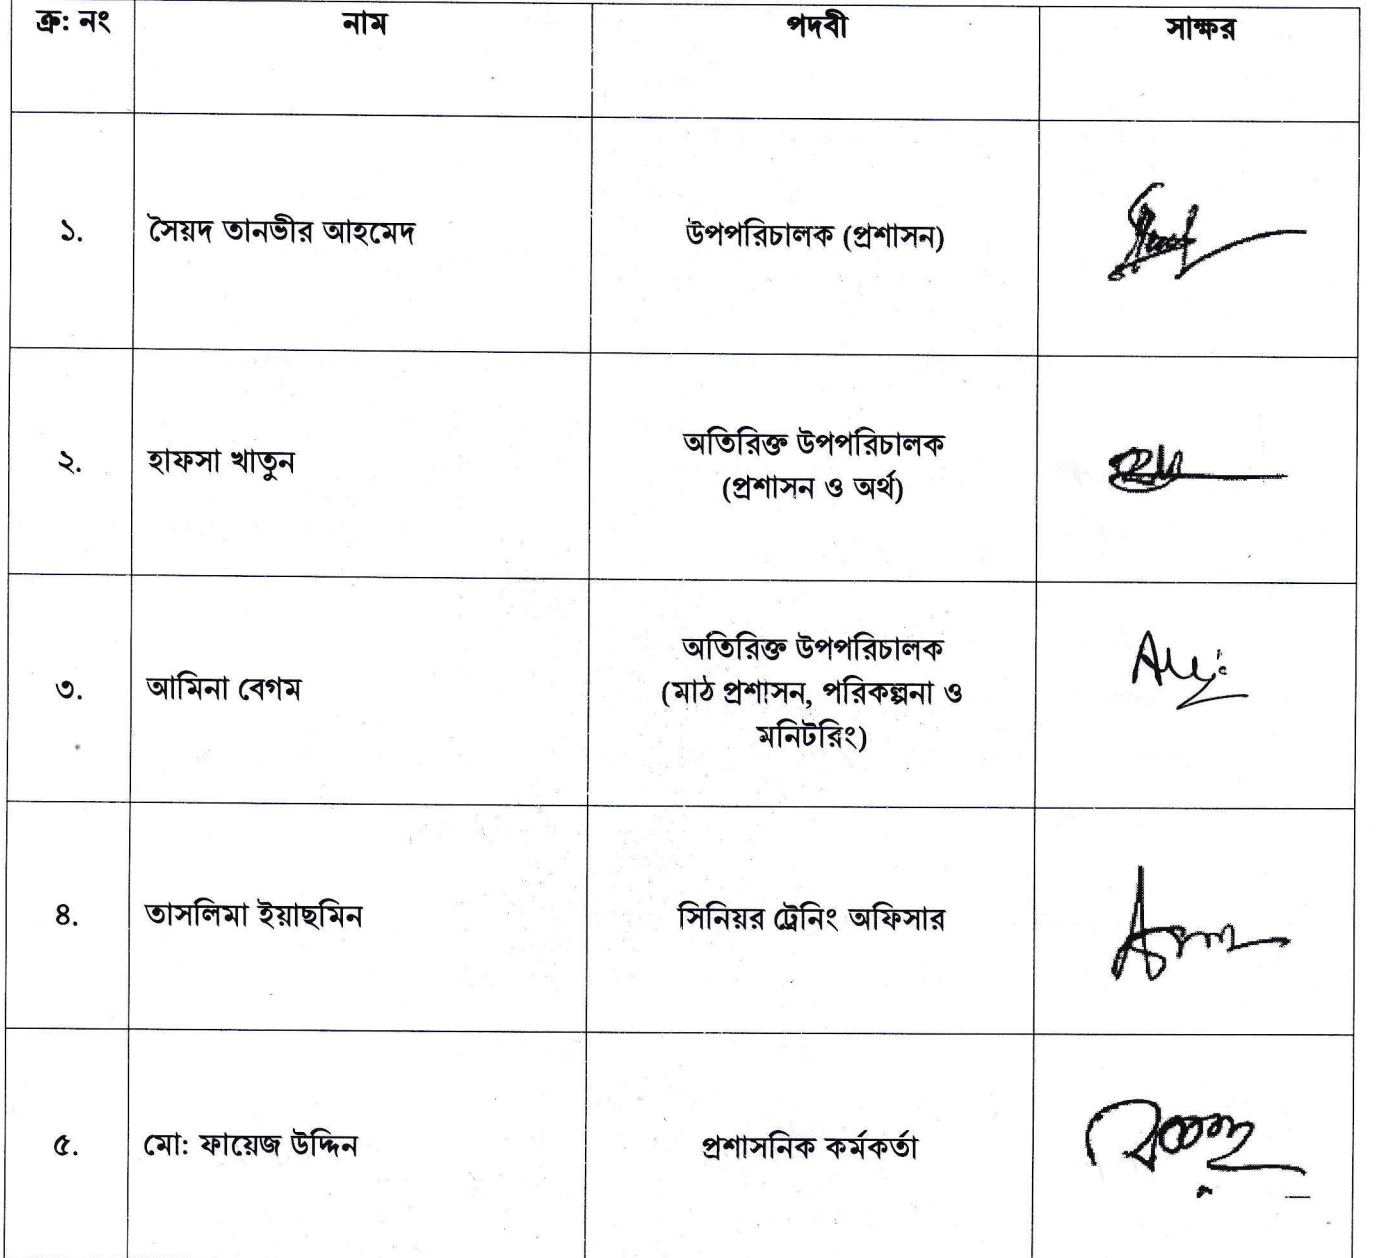 ক্র: নং নাম পদবী সাক্ষর
১. সৈয়দ তানভীর আহমেদ উপপরিচালক (প্রশাসন)
২. হাফসা খাতুন অতিরিক্ত উপপরিচালক
(প্রশাসন ও অর্থ)
৩. আমিনা বেগম অতিরিক্ত উপপরিচালক
(মাঠ প্রশাসন, পরিকল্পনা ও
মনিটরিং)
৪. তাসলিমা ইয়াছমিন সিনিয়র ট্রেনিং অফিসার
৫. মো: ফায়েজ উদ্দিন প্রশাসনিক কর্মকর্তা